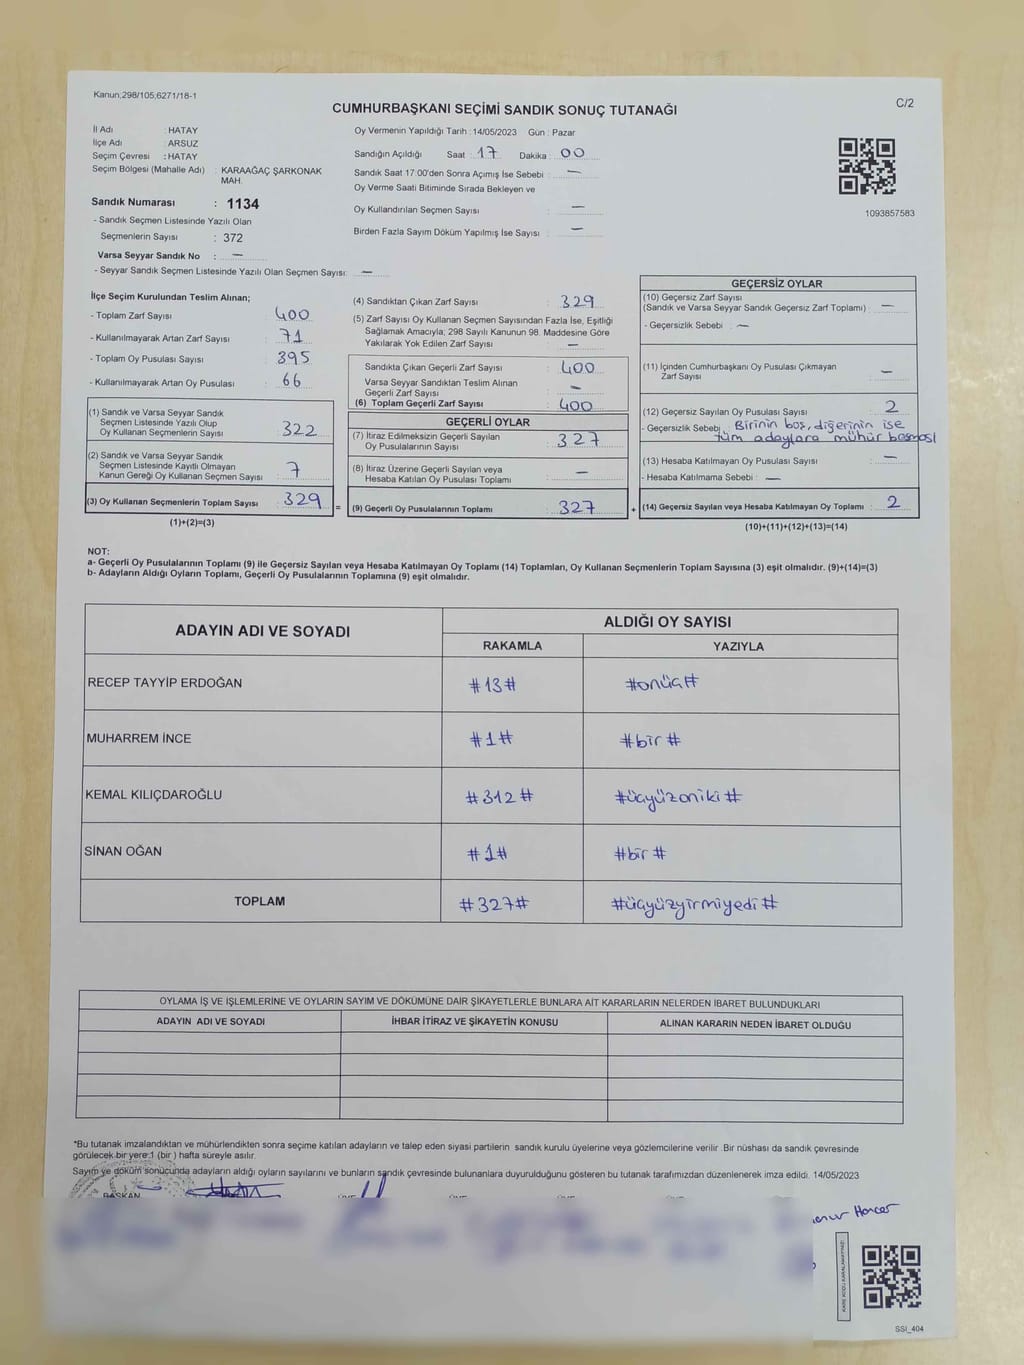 Kanun;298/105,6271/18-1
CUMHURBAŞKANI SEÇİMİ SANDIK SONUÇ TUTANAĞI
C/2
İl Adı : HATAY
İlçe Adı : ARSUZ
Seçim Çevresi : HATAY
Seçim Bölgesi (Mahalle Adı) : KARAAĞAÇ ŞARKONAK
MAH.
Sandık Numarası : 1134
- Sandık Seçmen Listesinde Yazılı Olan
Seçmenlerin Sayısı : 372
Varsa Seyyar Sandık No : —
- Seyyar Sandık Seçmen Listesinde Yazılı Olan Seçmen Sayısı: —
Oy Vermenin Yapıldığı Tarih : 14/05/2023 Gün : Pazar
Sandığın Açıldığı Saat : 17 Dakika : 00
Sandık Saat 17:00'den Sonra Açımış İse Sebebi : —
Oy Verme Saati Bitiminde Sırada Bekleyen ve
Oy Kullandırılan Seçmen Sayısı : —
Birden Fazla Sayım Döküm Yapılmış İse Sayısı : —
1093857583
İlçe Seçim Kurulundan Teslim Alınan;
- Toplam Zarf Sayısı : 400
- Kullanılmayarak Artan Zarf Sayısı : 71
- Toplam Oy Pusulası Sayısı : 395
- Kullanılmayarak Artan Oy Pusulası : 66
(1) Sandık ve Varsa Seyyar Sandık
Seçmen Listesinde Yazılı Olup
Oy Kullanan Seçmenlerin Sayısı : 322
(2) Sandık ve Varsa Seyyar Sandık
Seçmen Listesinde Kayıtlı Olmayan
Kanun Gereği Oy Kullanan Seçmen Sayısı : 7
(3) Oy Kullanan Seçmenlerin Toplam Sayısı : 329
(1)+(2)=(3)
(4) Sandıktan Çıkan Zarf Sayısı : 329
(5) Zarf Sayısı Oy Kullanan Seçmen Sayısından Fazla İse, Eşitliği
Sağlamak Amacıyla; 298 Sayılı Kanunun 98. Maddesine Göre
Yakılarak Yok Edilen Zarf Sayısı : —
Sandıkta Çıkan Geçerli Zarf Sayısı : 400
Varsa Seyyar Sandıktan Teslim Alınan
Geçerli Zarf Sayısı : —
(6) Toplam Geçerli Zarf Sayısı : 400
GEÇERLİ OYLAR
(7) İtiraz Edilmeksizin Geçerli Sayılan
Oy Pusulalarının Sayısı : 327
(8) İtiraz Üzerine Geçerli Sayılan veya
Hesaba Katılan Oy Pusulası Toplamı : —
= (9) Geçerli Oy Pusulalarının Toplamı : 327
GEÇERSİZ OYLAR
(10) Geçersiz Zarf Sayısı
(Sandık ve Varsa Seyyar Sandık Geçersiz Zarf Toplamı) : —
- Geçersizlik Sebebi : —
(11) İçinden Cumhurbaşkanı Oy Pusulası Çıkmayan
Zarf Sayısı : —
(12) Geçersiz Sayılan Oy Pusulası Sayısı : 2
- Geçersizlik Sebebi : Birinin boş, diğerinin ise
tüm adaylara mühür basması
(13) Hesaba Katılmayan Oy Pusulası Sayısı : —
- Hesaba Katılmama Sebebi : —
+ (14) Geçersiz Sayılan veya Hesaba Katılmayan Oy Toplamı : 2
(10)+(11)+(12)+(13)=(14)
NOT:
a- Geçerli Oy Pusulalarının Toplamı (9) ile Geçersiz Sayılan veya Hesaba Katılmayan Oy Toplamı (14) Toplamları, Oy Kullanan Seçmenlerin Toplam Sayısına (3) eşit olmalıdır. (9)+(14)=(3)
b- Adayların Aldığı Oyların Toplamı, Geçerli Oy Pusulalarının Toplamına (9) eşit olmalıdır.
ADAYIN ADI VE SOYADI
ALDIĞI OY SAYISI
RAKAMLA YAZIYLA
RECEP TAYYİP ERDOĞAN #13# #onüç#
MUHARREM İNCE #1# #bir#
KEMAL KILIÇDAROĞLU #312# #üçyüzoniki#
SİNAN OĞAN #1# #bir#
TOPLAM #327# #üçyüzyirmiyedi#
OYLAMA İŞ VE İŞLEMLERİNE VE OYLARIN SAYIM VE DÖKÜMÜNE DAİR ŞİKAYETLERLE BUNLARA AİT KARARLARIN NELERDEN İBARET BULUNDUKLARI
ADAYIN ADI VE SOYADI İHBAR İTİRAZ VE ŞİKAYETİN KONUSU ALINAN KARARIN NEDEN İBARET OLDUĞU
*Bu tutanak imzalandıktan ve mühürlendikten sonra seçime katılan adayların ve talep eden siyasi partilerin sandık kurulu üyelerine veya gözlemcilerine verilir. Bir nüshası da sandık çevresinde
görülecek bir yere 1 (bir ) hafta süreyle asılır.
Sayım ve döküm sonucunda adayların aldığı oyların sayılarını ve bunların sandık çevresinde bulunanlara duyurulduğunu gösteren bu tutanak tarafımızdan düzenlenerek imza edildi. 14/05/2023
BAŞKAN
SSİ_404